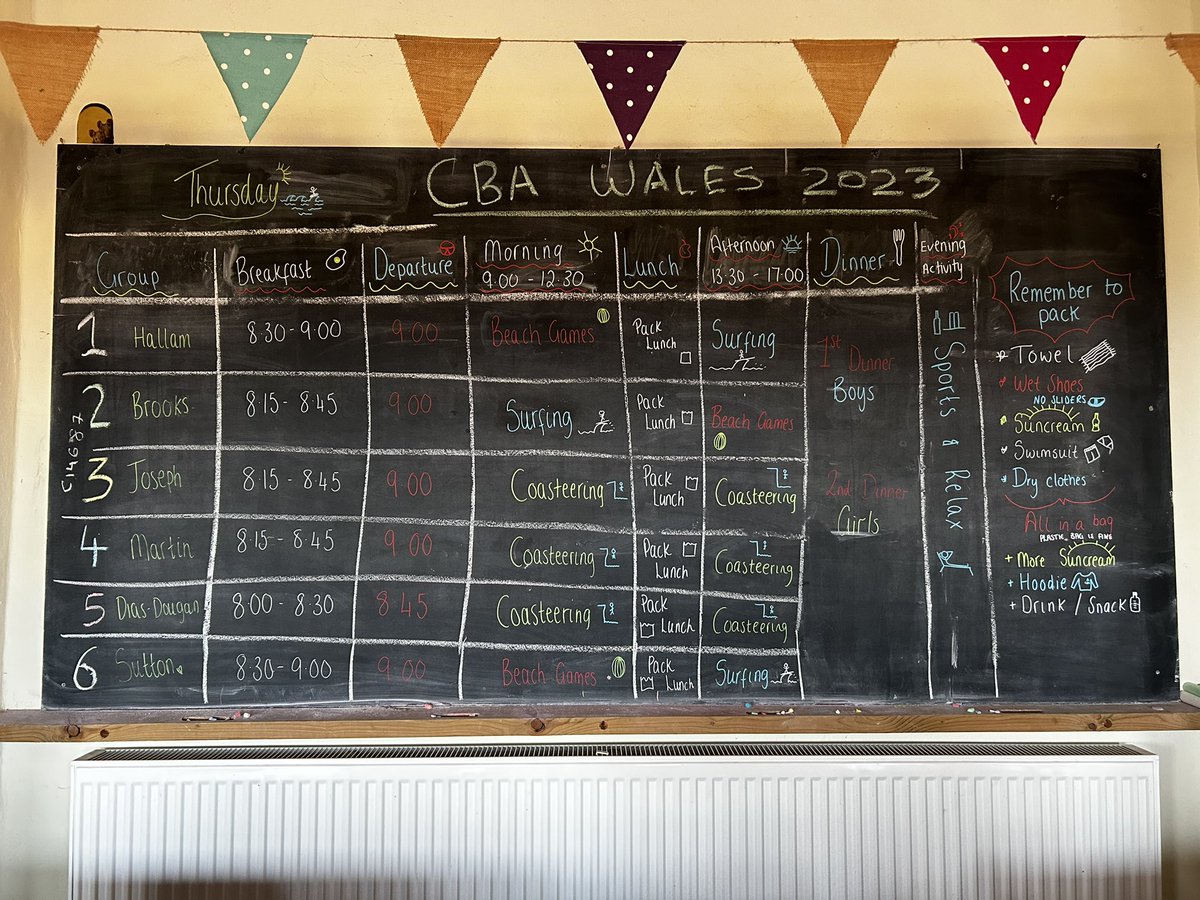 Thursday
CBA WALES 2023
Group Breakfast Departure Morning Lunch Afternoon Dinner Evening
9.00 - 12.30 13.30 - 17.00 Activity
1 Hallam 8.30 - 9.00 9.00 Beach Games Pack Lunch Surfing
2 Brooks 8.15 - 8.45 9.00 Surfing Pack Lunch Beach Games
3 Joseph 8.15 - 8.45 9.00 Coasteering Pack Lunch Coasteering
4 Martin 8.15 - 8.45 9.00 Coasteering Pack Lunch Coasteering
5 Dias-Dougan 8.00 - 8.30 8.45 Coasteering Pack Lunch Coasteering
6 Sutton 8.30 - 9.00 9.00 Beach Games Pack Lunch Surfing
1st Dinner
Boys
2nd Dinner
Girls
Sports & Relax
Remember to
pack
Towel
Wet Shoes
NO SLIDERS
Suncream
Swimsuit
Dry clothes
All in a bag
+ More Suncream
+ Hoodie
+ Drink / Snack